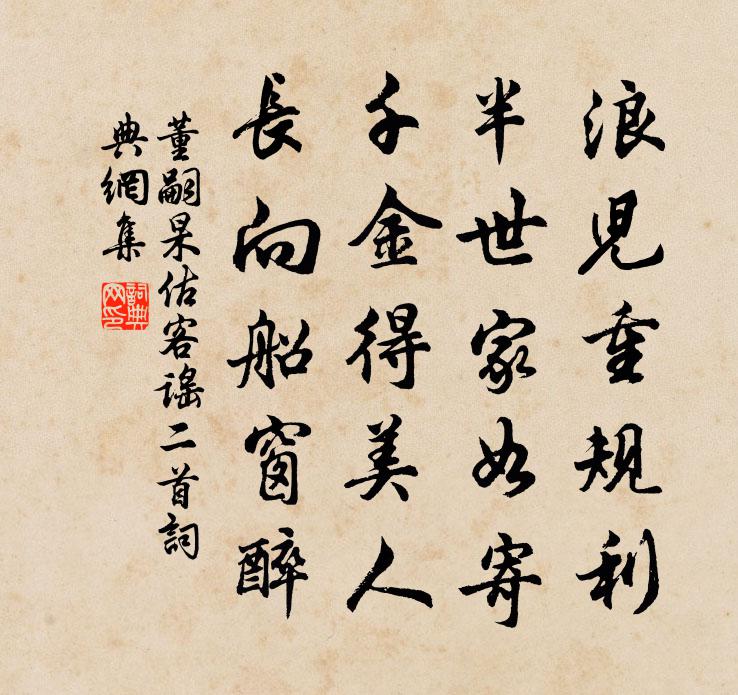 浪兒重規利
半世家如寄
千金得美人
長向船窗醉
董嗣杲估客謠二首詞
典網集
詞典
网印